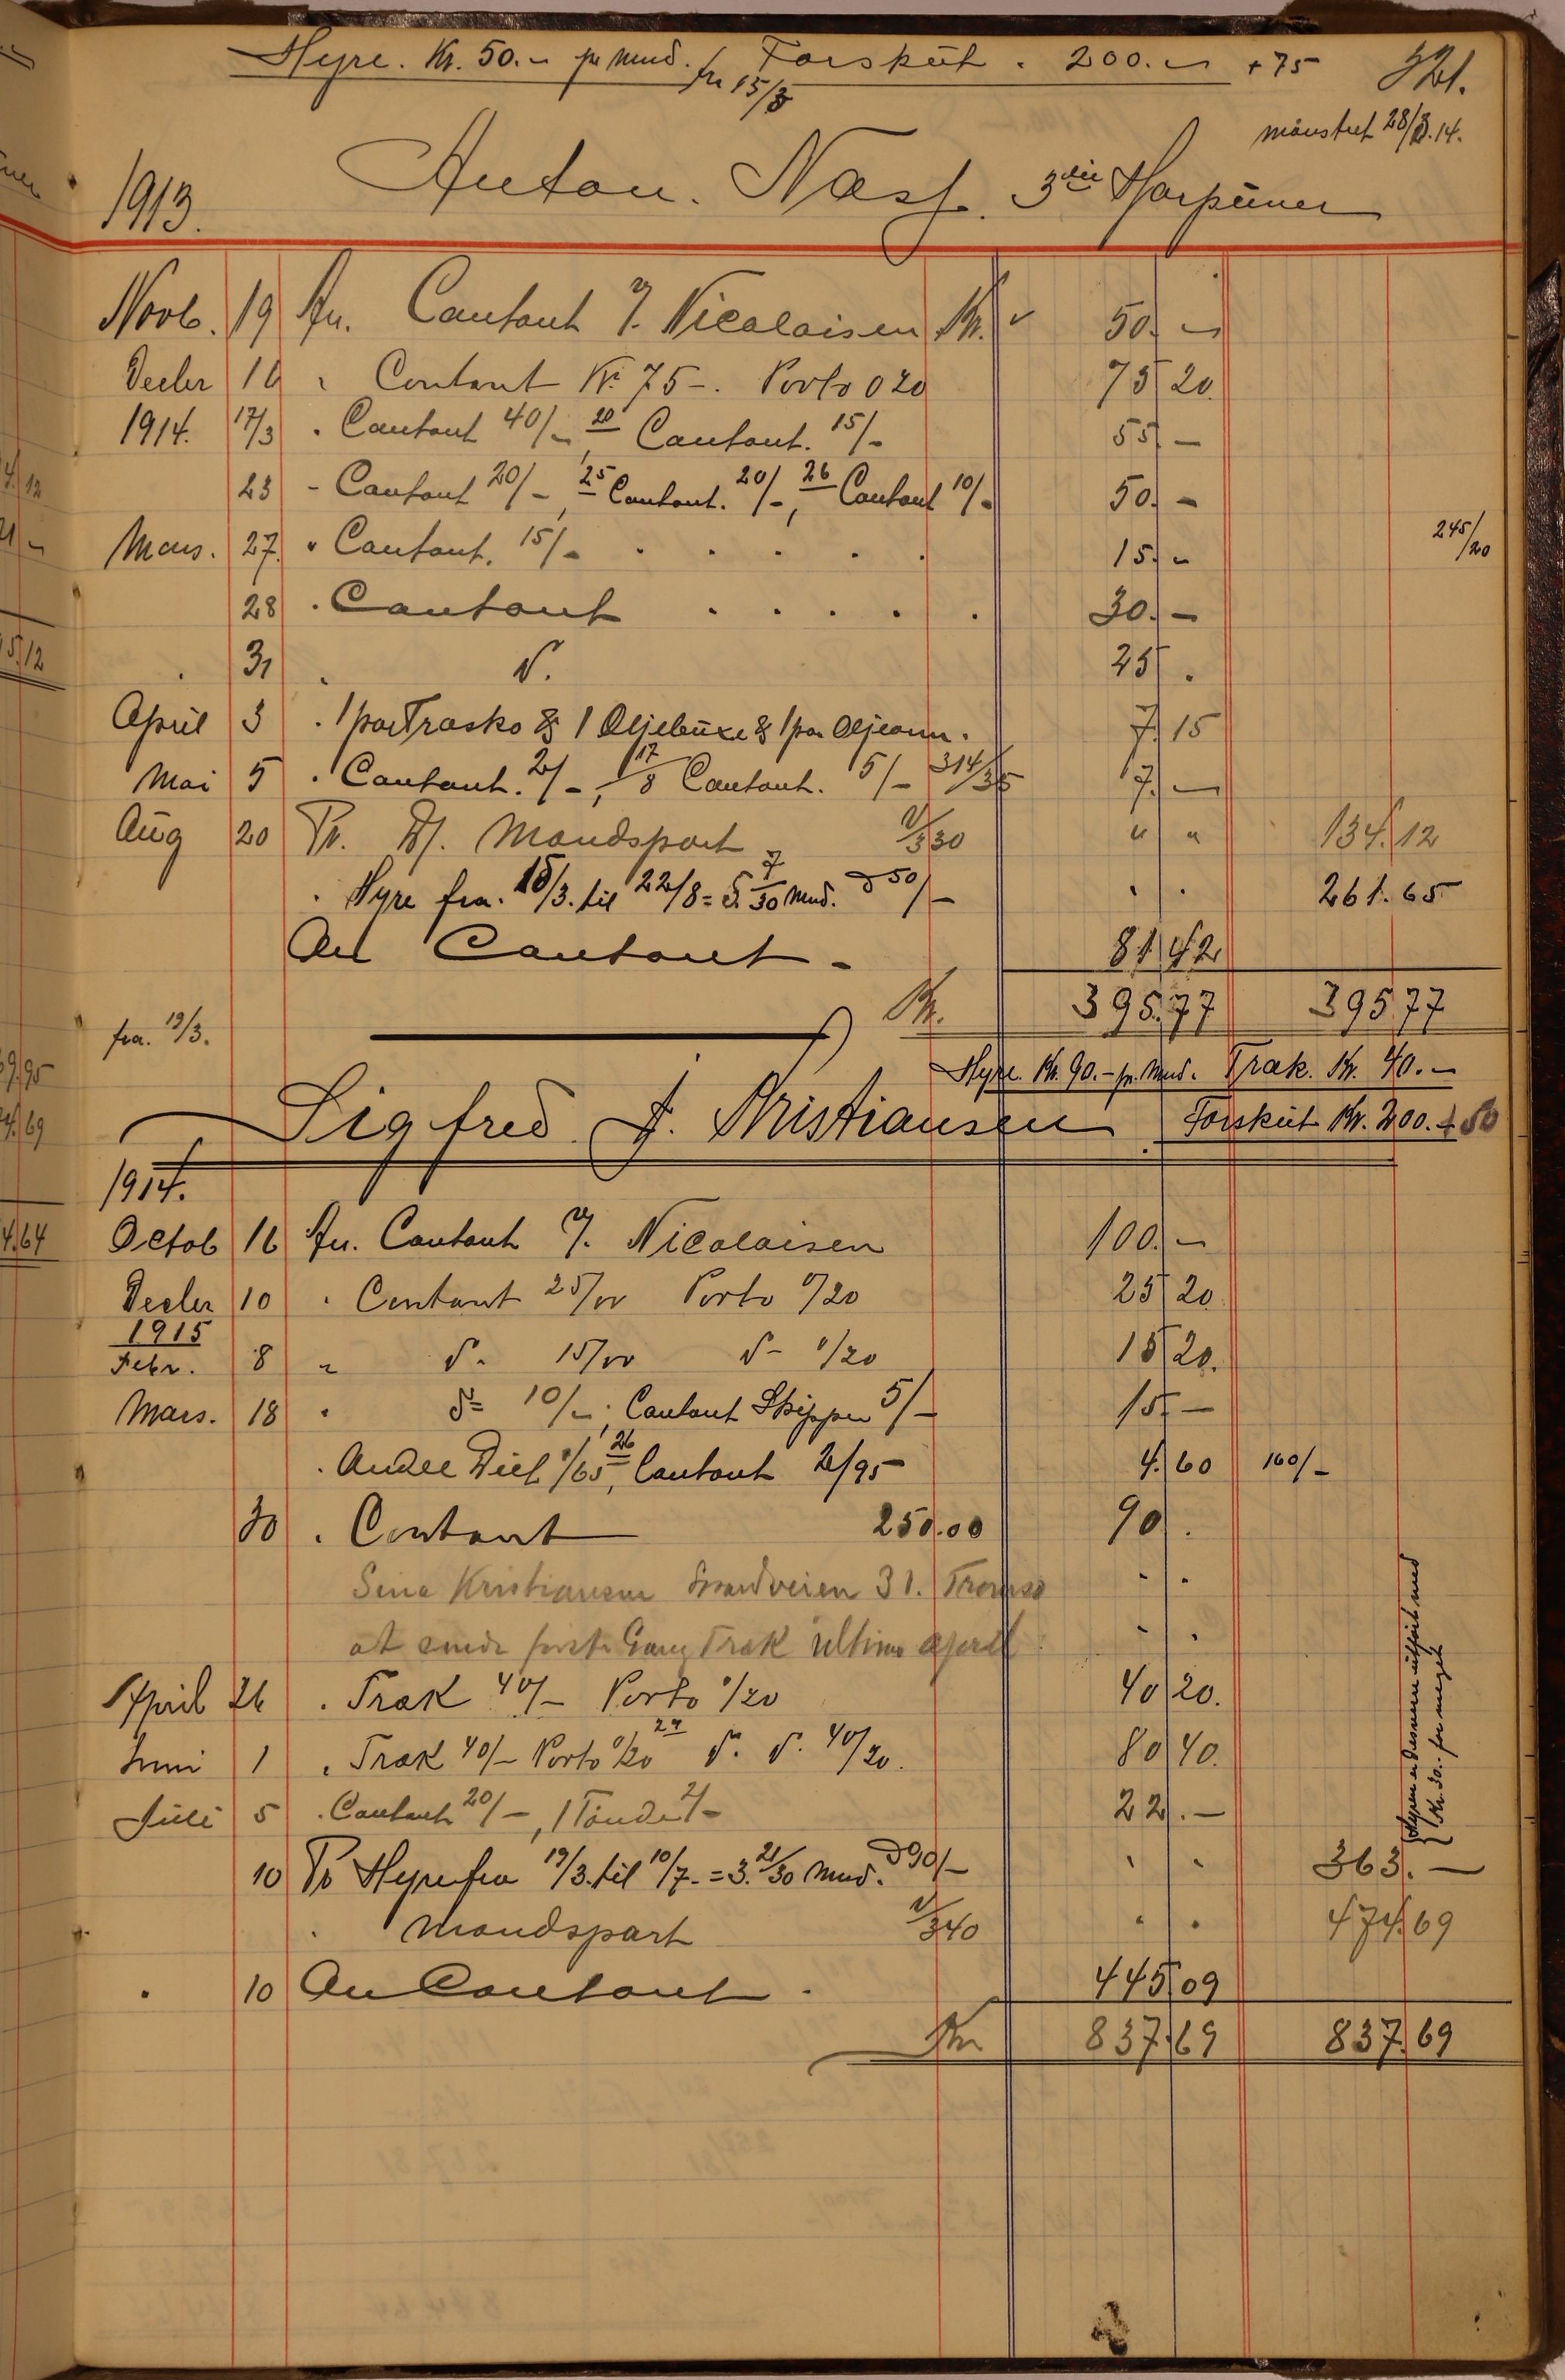 Hyre. Kr. 50.- pr mnd. fra 15/3 Forsküt. 200.- + 75 321.
mönstret 28/3.14.
1913. Anton. Næss. 3die Harpüner
Novb. 19 An. Contant J. Nicolaisen Kr. 50.-
Decbr 16 " Contant Kr. 75-. Porto 0 20 75 20
1914. 17/3 " Contant 40/-, 20 Contant. 15/- 55 -
23 - Contant 20/-, 25 Contant. 20/-, 26 Contant 10/- 50. -
Mars. 27. " Contant. 15/- . . . . . 15. - 245/20
28 . Contant . . . . . 30. -
31 . d. 25 .
April 3 . 1 par Træsko & 1 Oljebüxe & 1 par Oljeærm. 7. 15
Mai 5 . Contant. 2/-, 17/8 Contant. 5/- 314/35 7. -
Aug 20 Pr. Mandspart 1/330 " " 134. 12
. Hyre fra. 15/3. til 22/8 = 5. 7/30 Mnd. à 50/- " . 261. 65
An Contant - 81 42
Kr. 395.77 395 77
fra. 19/3.
Hyre. Kr. 90.- pr. Mnd. Træk. Kr. 40.-
Sigfred J. Kristiansen Forsküt Kr. 200. + 50
1914.
Octob 16 An. Contant J. Nicolaisen 100. -
Decbr 10 . Contant 25/00 Porto 0/20 25 20
1915
Febr. 8 " d. 15/00 d- 0/20 15 20.
Mars. 18 . d= 10/-, Contant Skipper 5/- 15 -
. Andel 1/65, 26 Contant 2/95 4. 60 160/-
30 . Contant 250.00 90 .
Sina Kristiansen Strandveien 31. Tromsø
at sende første Gang Træk ultimo april
April 26 . Træk 40/- Porto 0/20 40 20.
Juni 1 . Træk 40/- Porto 0/20 29 d. d. 40/20. 80 40.
Juli 5 . Contant 20/-, 1 Tønde 2/- 22. -
10 Pr Hyre fra 19/3. til 10/7. = 3. 21/30 Mnd. à 90/- " " 363. -
Hyren er desværre utført med
Kr. 30.- for meget
. Mandspart 1/340 " . 474. 69
. 10 An Contant . 445 09
Kr 837.69 837. 69